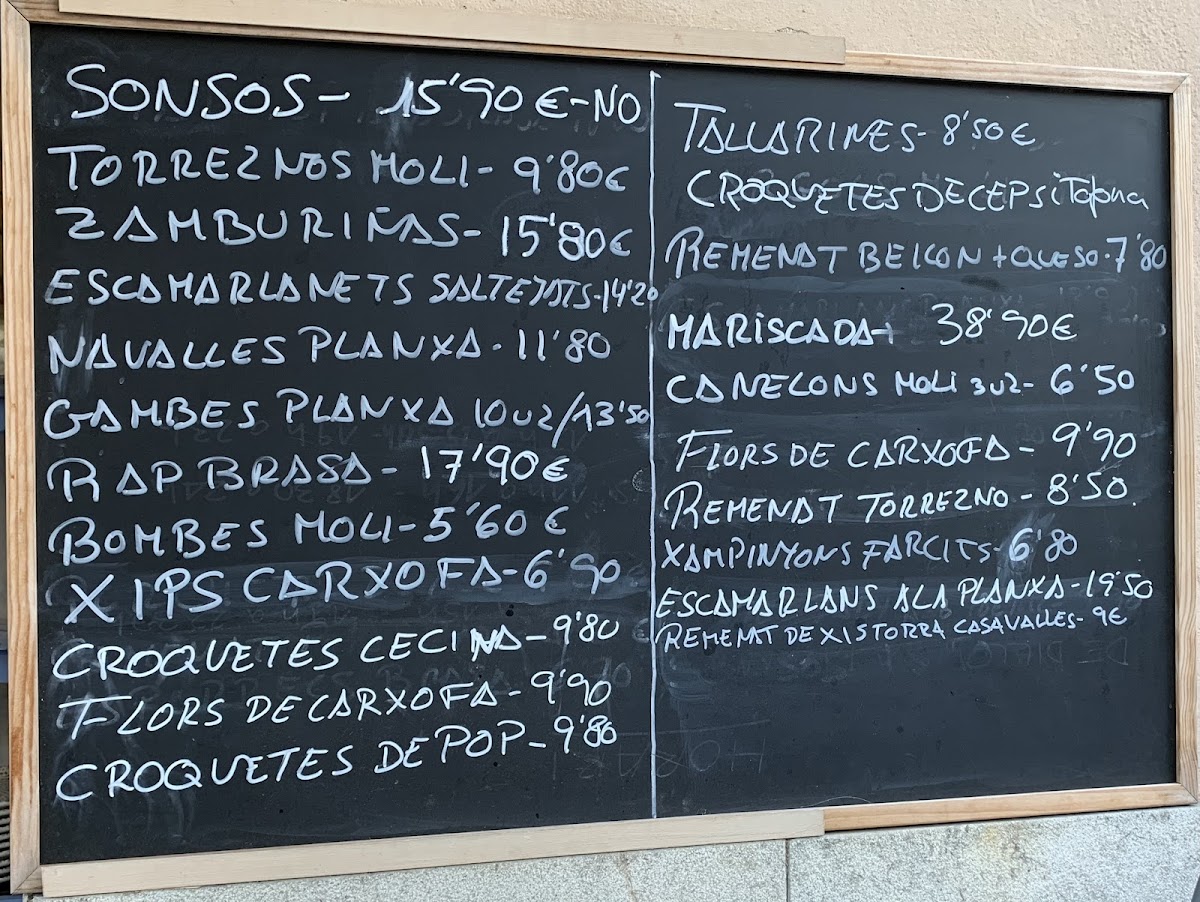 SONSOS - 15'90 € - NO
TORREZNOS MOLI - 9'80€
ZAMBURIÑAS - 15'80€
ESCAMARLANETS SALTEJATS - 14'20
NAVALLES PLANXA - 11'80
GAMBES PLANXA 10uz/13'50
RAP BRASA - 17'90€
BOMBES MOLI - 5'60 €
XIPS CARXOFA - 6'90
CROQUETES CECINA - 9'80
FLORS DE CARXOFA - 9'90
CROQUETES DE POP - 9'80
TALLARINES - 8'50€
CROQUETES DE CEPS i Tofona
REMENAT BEICON + QUESO - 7'80
MARISCADA - 38'90€
CANELONS MOLI 3uz - 6'50
FLORS DE CARXOFA - 9'90
REMENAT TORREZNO - 8'50
XAMPINYONS FARCITS - 6'80
ESCAMARLANS A LA PLANXA - 19'50
REMENAT DE XISTORRA CASAVALLES - 9€